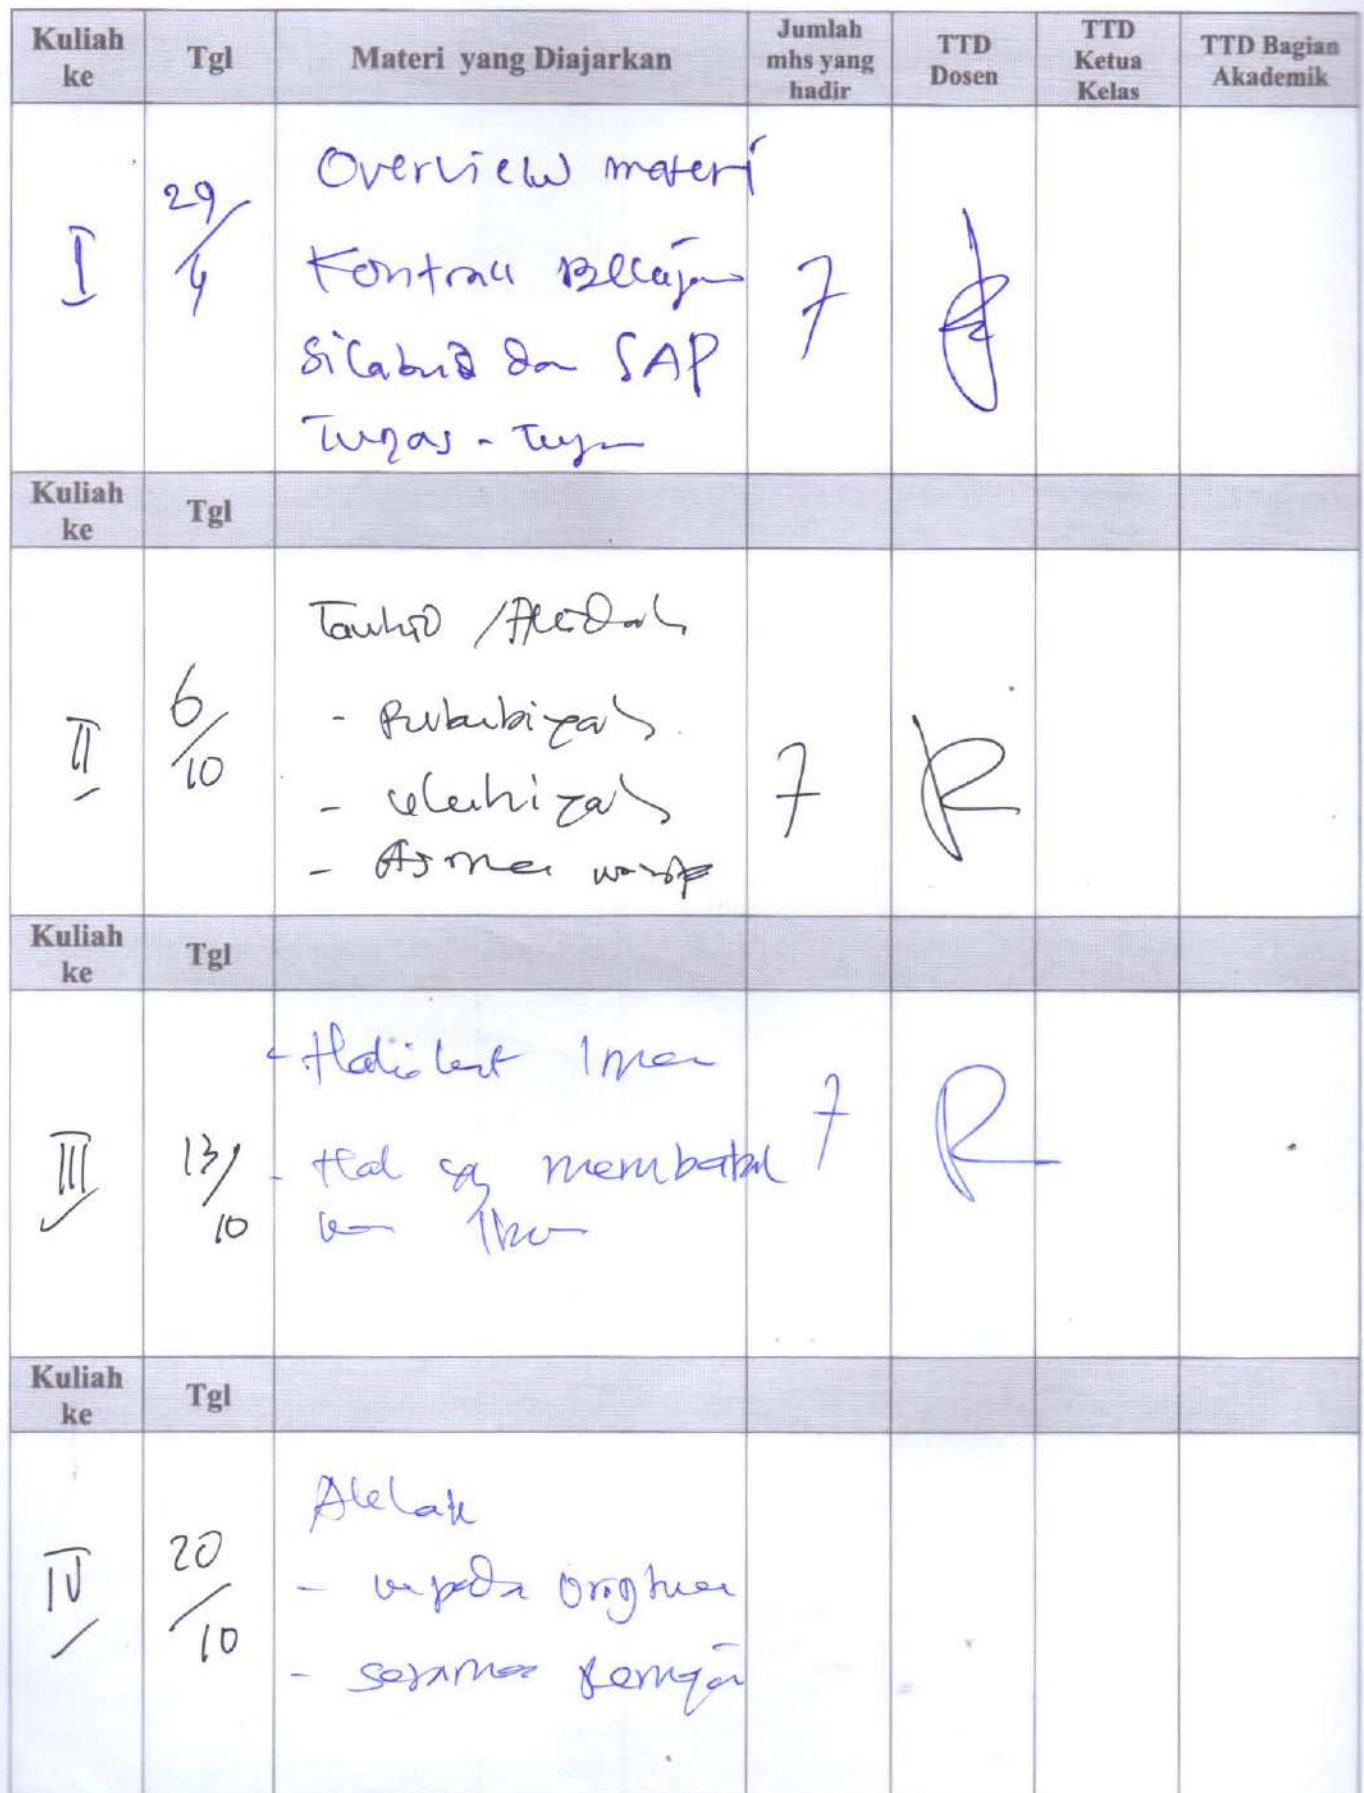 Kuliah ke Tgl Materi yang Diajarkan Jumlah mhs yang hadir TTD Dosen TTD Ketua Kelas TTD Bagian Akademik
I 29/4 Overview materi 7
Kontrak Belajar
Silabus dan SAP
Tugas - Tugas
Kuliah ke Tgl
II 6/10 Tauhid / Akidah 7
- Rububiyah
- uluhiyah
- Asma
Kuliah ke Tgl
III 13/10 - Hakikat Iman 7
- Hal yg membatal
kan Iman
Kuliah ke Tgl
IV 20/10 Akhlak
- kepada orgtua
- sesama